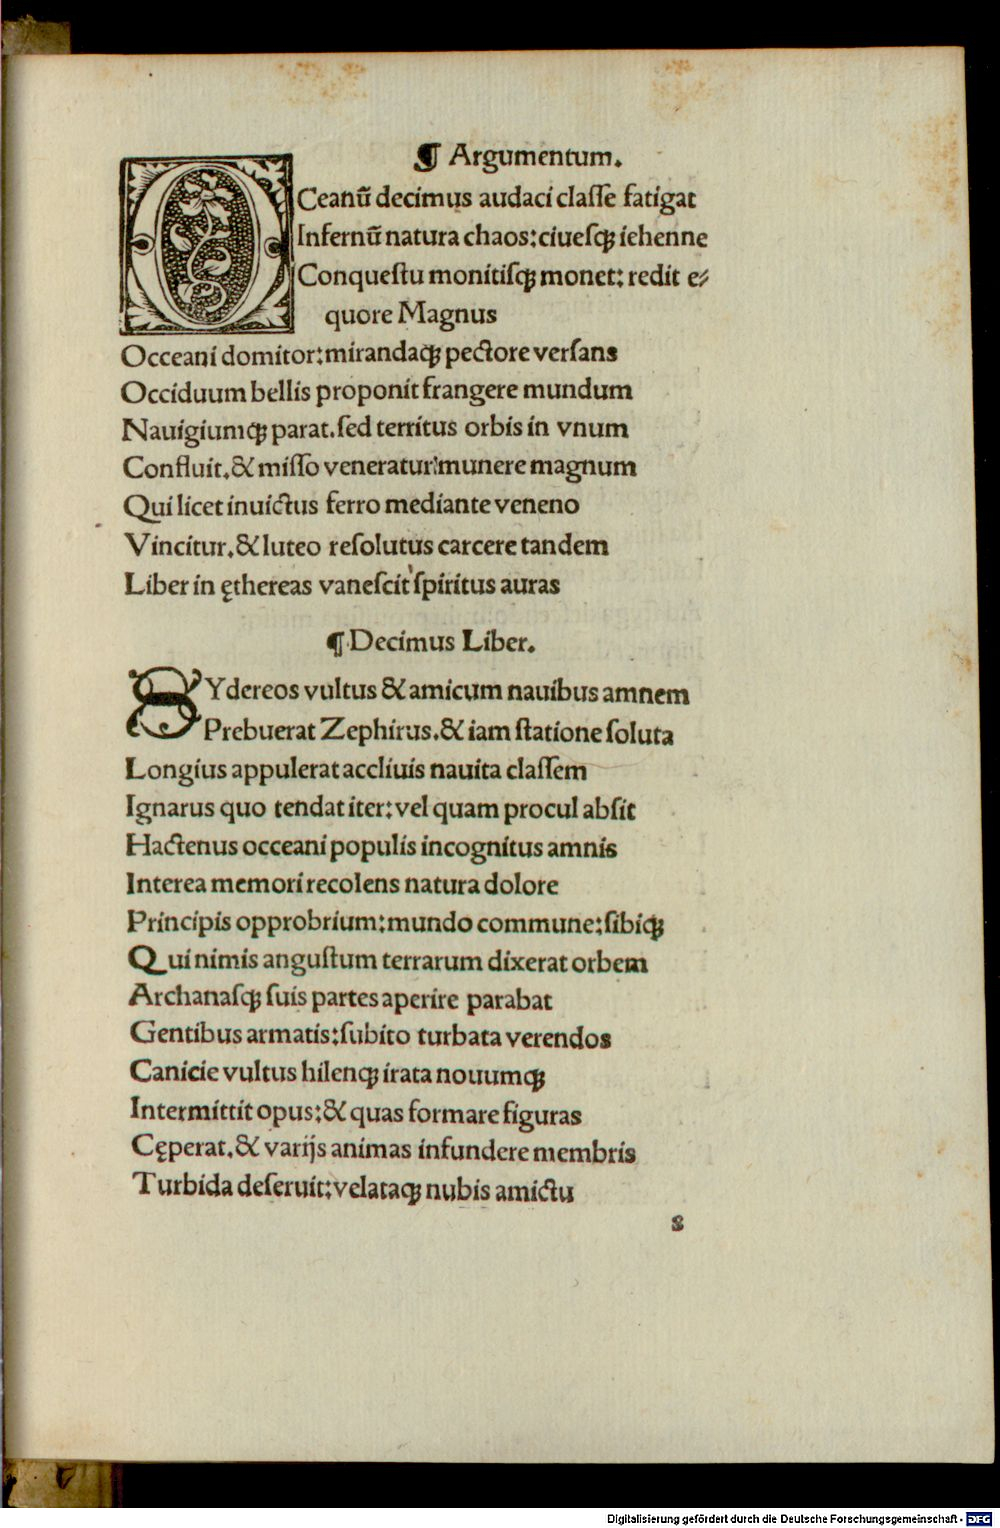 ¶ Argumentum.
OCeanū decimus audaci claſſe fatigat
Infernū natura chaos: ciueſqꝫ iehenne
Conqueſtu monitiſqꝫ monet: redit e⸗
quore Magnus
Occeani domitor: mirandaqꝫ pectore verſans
Occiduum bellis proponit frangere mundum
Nauigiumqꝫ parat. ſed territus orbis in vnum
Confluit. & miſſo veneratur munere magnum
Qui licet inuictus ferro mediante veneno
Vincitur. & luteo reſolutus carcere tandem
Liber in ęthereas vaneſcit ſpiritus auras
¶ Decimus Liber.
SYdereos vultus & amicum nauibus amnem
Prebuerat Zephirus. & iam ſtatione ſoluta
Longius appulerat accliuis nauita claſſem
Ignarus quo tendat iter: vel quam procul abſit
Hactenus occeani populis incognitus amnis
Interea memori recolens natura dolore
Principis opprobrium: mundo commune: ſibiqꝫ
Qui nimis anguſtum terrarum dixerat orbem
Archanaſqꝫ ſuis partes aperire parabat
Gentibus armatis: ſubito turbata verendos
Canicie vultus hilenqꝫ irata nouumqꝫ
Intermittit opus: & quas formare figuras
Cęperat. & varijs animas infundere membris
Turbida deſeruit: velataqꝫ nubis amictu
s
Digitalisierung gefördert durch die Deutsche Forschungsgemeinschaft - DFG